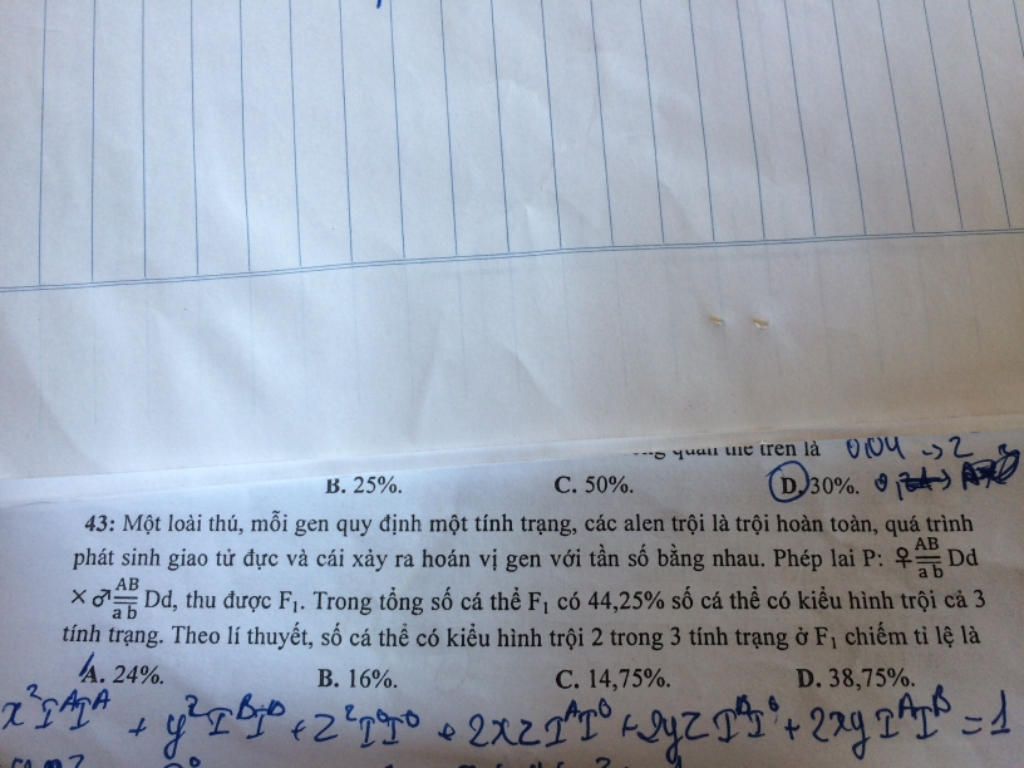 quan the trên là 0,04 -> 2
B. 25%. C. 50%. D. 30%.
43: Một loài thú, mỗi gen quy định một tính trạng, các alen trội là trội hoàn toàn, quá trình
phát sinh giao tử đực và cái xảy ra hoán vị gen với tần số bằng nhau. Phép lai P: ♀ AB/ab Dd
× ♂ AB/ab Dd, thu được F₁. Trong tổng số cá thể F₁ có 44,25% số cá thể có kiểu hình trội cả 3
tính trạng. Theo lí thuyết, số cá thể có kiểu hình trội 2 trong 3 tính trạng ở F₁ chiếm tỉ lệ là
A. 24%. B. 16%. C. 14,75%. D. 38,75%.
x² IᴬIᴬ + y² IᴮIᴮ + z² IᴼIᴼ + 2xz IᴬIᴼ + 2yz IᴮIᴼ + 2xy IᴬIᴮ = 1